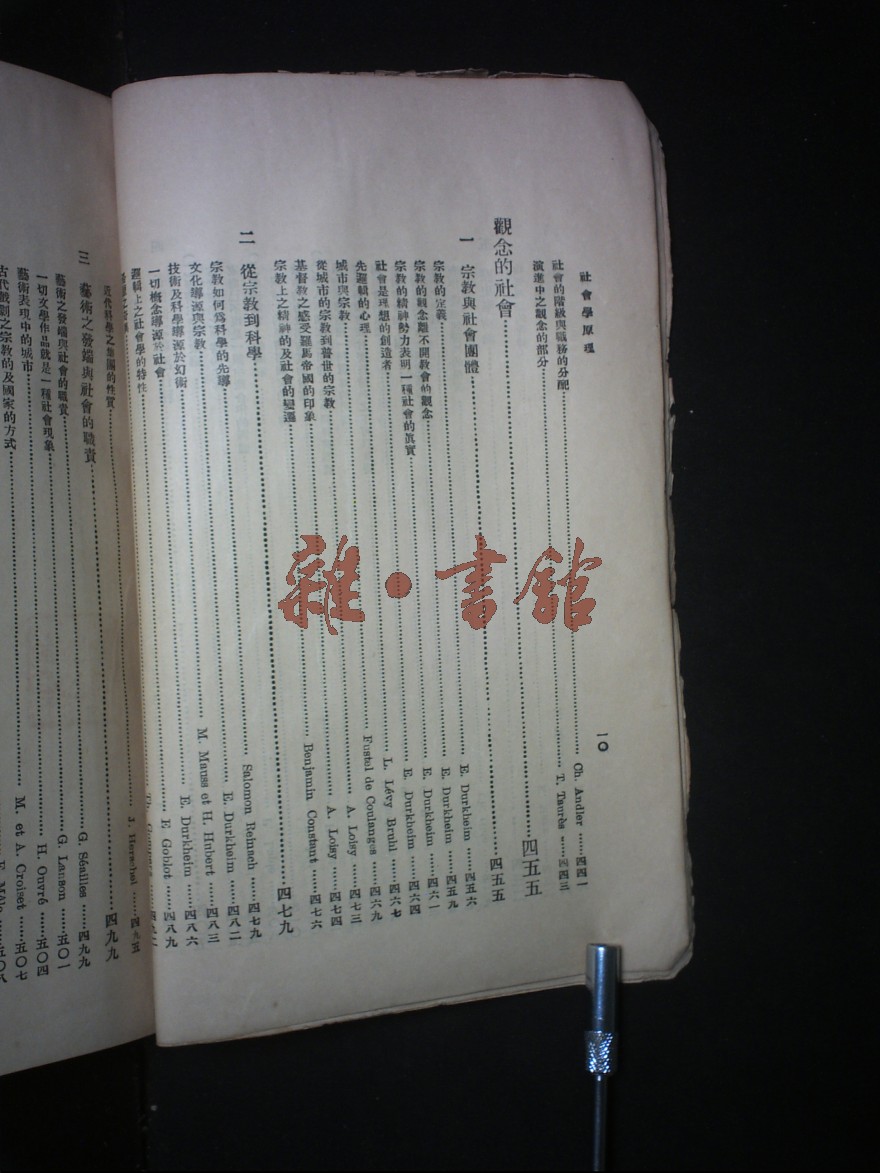 社會學原理 一〇
社會的階級與職務的分配……Ch. Andler……四四一
演進中之觀念的部分……T. Taurès……四四三
觀念的社會……四五五
一 宗教與社會團體……四五五
宗教的定義……E. Durkheim……四五六
宗教的觀念離不開教會的觀念……E. Durkheim……四五九
宗教的精神勢力表明一種社會的眞實……E. Durkheim……四六一
社會是理想的創造者……E. Durkheim……四六四
先邏輯的心理……L. Lévy Bruhl……四六七
城市與宗教……Fustel de Coulanges……四六九
從城市的宗教到普世的宗教……A. Loisy……四七三
基督教之感受羅馬帝國的印象……A. Loisy……四七四
宗教上之精神的及社會的變遷……Benjamin Constant……四七六
二 從宗教到科學……四七九
宗教如何爲科學的先導……Salomon Reinach……四七九
文化導源與宗教……E. Durkheim……四八二
技術及科學導源於幻術……M. Mauss et H. Hubert……四八三
一切概念導源於社會……E. Durkheim……四八六
邏輯上之社會學的特性……E Goblot……四八九
近代科學之集團的性質……J. Herschel……四九五
三 藝術之發端與社會的職責……四九九
藝術之發端與社會的職責……G. Séailles……四九九
一切文學作品就是一種社會現象……G. Lanson……五〇一
藝術表現中的城市……H. Ouvré……五〇四
古代戲劇之宗教的及國家的方式……M. et A. Croiset……五〇七
雜·書館